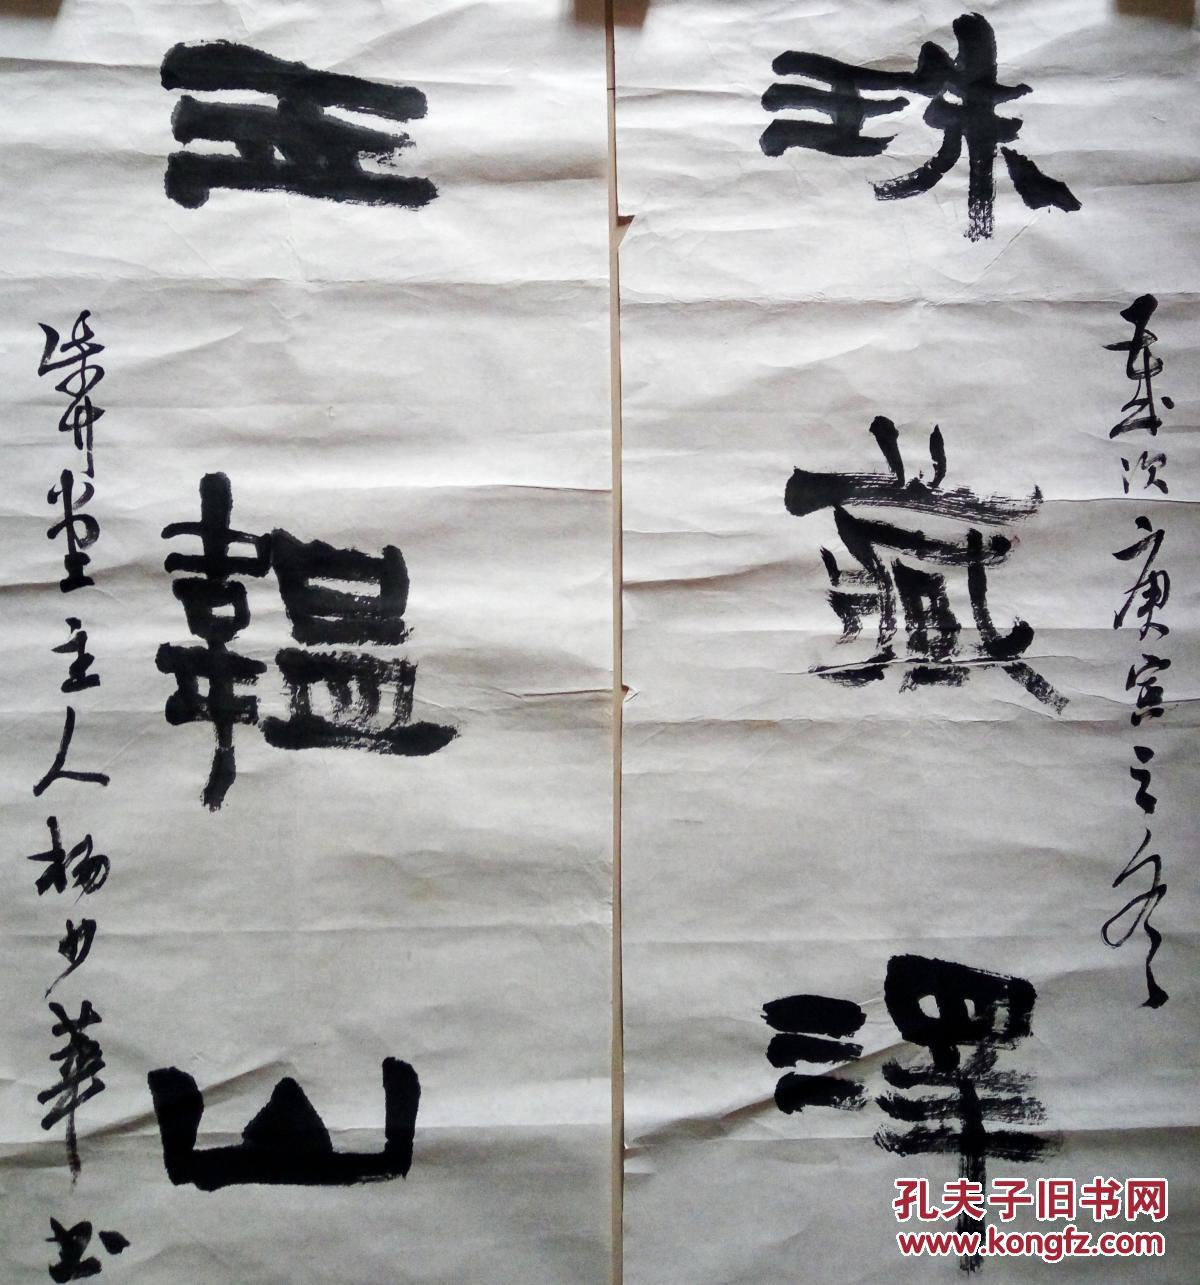 珠藏澤
歲次庚寅之冬
玉韞山
堂主人楊少華书
孔夫子旧书网
www.kongfz.com